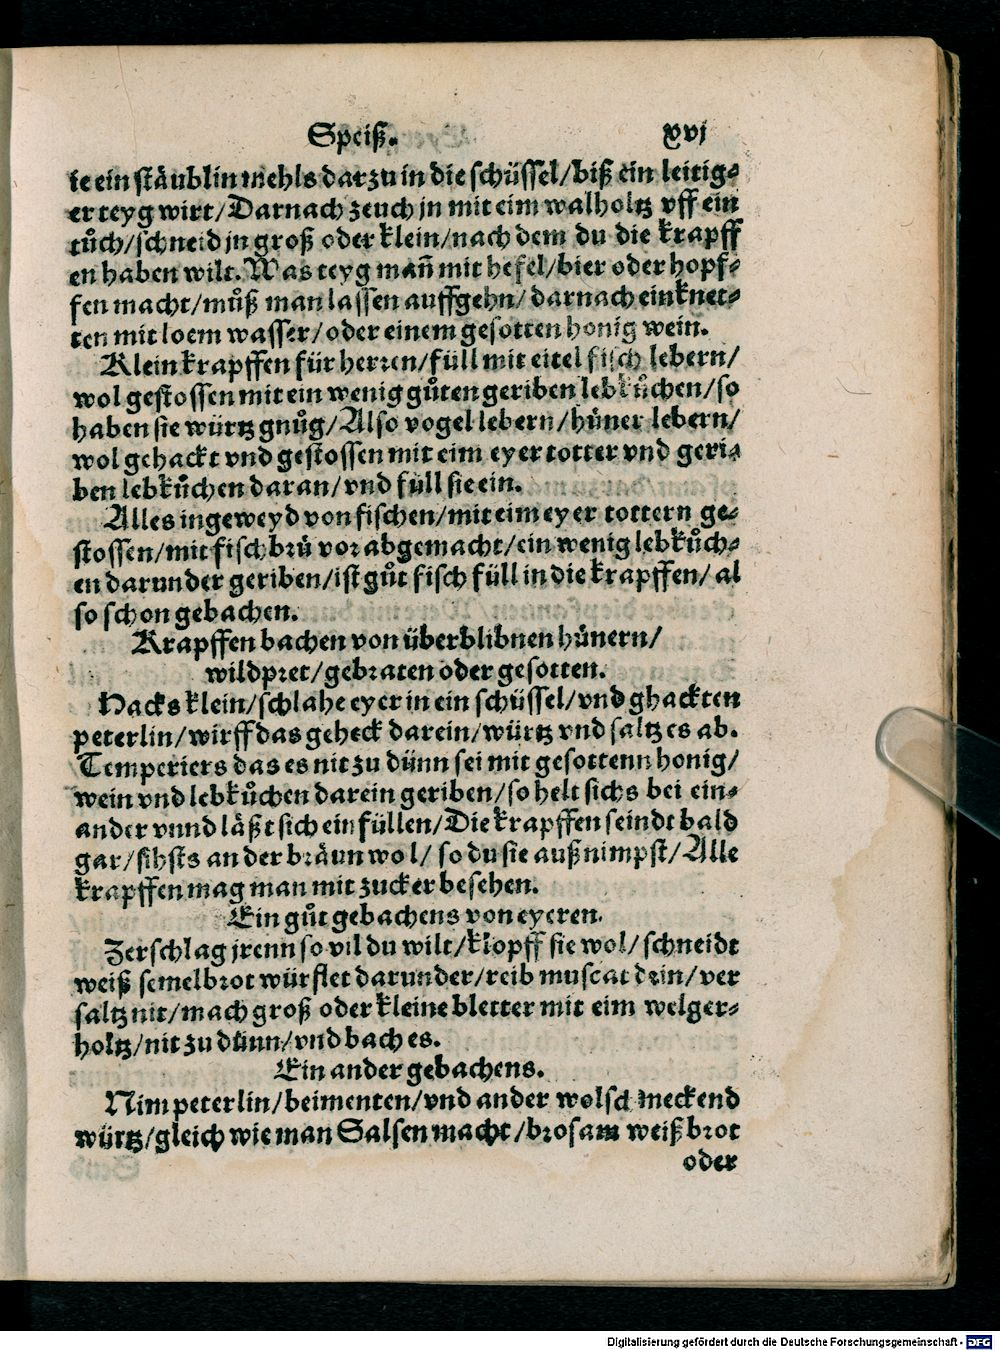 Speiß. xvj
ie ein stäublin mehls darzu in die schüssel/biß ein leitig⸗
er teyg wirt/Darnach zeuch jn mit eim walholtz vff ein
tůch/schneid jn groß oder klein/nach dem du die krapff
en haben wilt. Was teyg mañ mit hefel/bier oder hopf⸗
fen macht/můß man lassen auffgehn/darnach einknet⸗
ten mit loem wasser/oder einem gesotten honig wein.
Klein krapffen für herren/füll mit eitel fisch lebern/
wol gestossen mit ein wenig gůten geriben lebkůchen/so
haben sie würtz gnůg/Also vogel lebern/hůner lebern/
wol gehackt vnd gestossen mit eim eyer totter vnd geri⸗
ben lebkůchen daran/vnd füll sie ein.
Alles ingeweyd von fischen/mit eim eyer tottern ge⸗
stossen/mit fischbrů vor abgemacht/ein wenig lebkůch⸗
en darunder geriben/ist gůt fisch füll in die krapffen/al
so schon gebachen.
Krapffen bachen von überblibnen hůnern/
wildpret/gebraten oder gesotten.
Hacks klein/schlahe eyer in ein schüssel/vnd ghackten
peterlin/wirff das geheck darein/würtz vnd saltz es ab.
Temperiers das es nit zu dünn sei mit gesottenn honig/
wein vnd lebkůchen darein geriben/so helt sichs bei ein⸗
ander vnnd läßt sich ein füllen/Die krapffen seindt bald
gar/sihsts an der bräun wol/so du sie außnimpst/Alle
krapffen mag man mit zucker besehen.
Ein gůt gebachens von eyeren.
Zerschlag jrenn so vil du wilt/klopff sie wol/schneidt
weiß semelbrot würflet darunder/reib muscat drin/ver
saltz nit/mach groß oder kleine bletter mit eim welger⸗
holtz/nit zu dünn/vnd bach es.
Ein ander gebachens.
Nim peterlin/beimenten/vnd ander wolschmeckend
würtz/gleich wie man Salsen macht/brosam weißbrot
oder
Digitalisierung gefördert durch die Deutsche Forschungsgemeinschaft - DFG